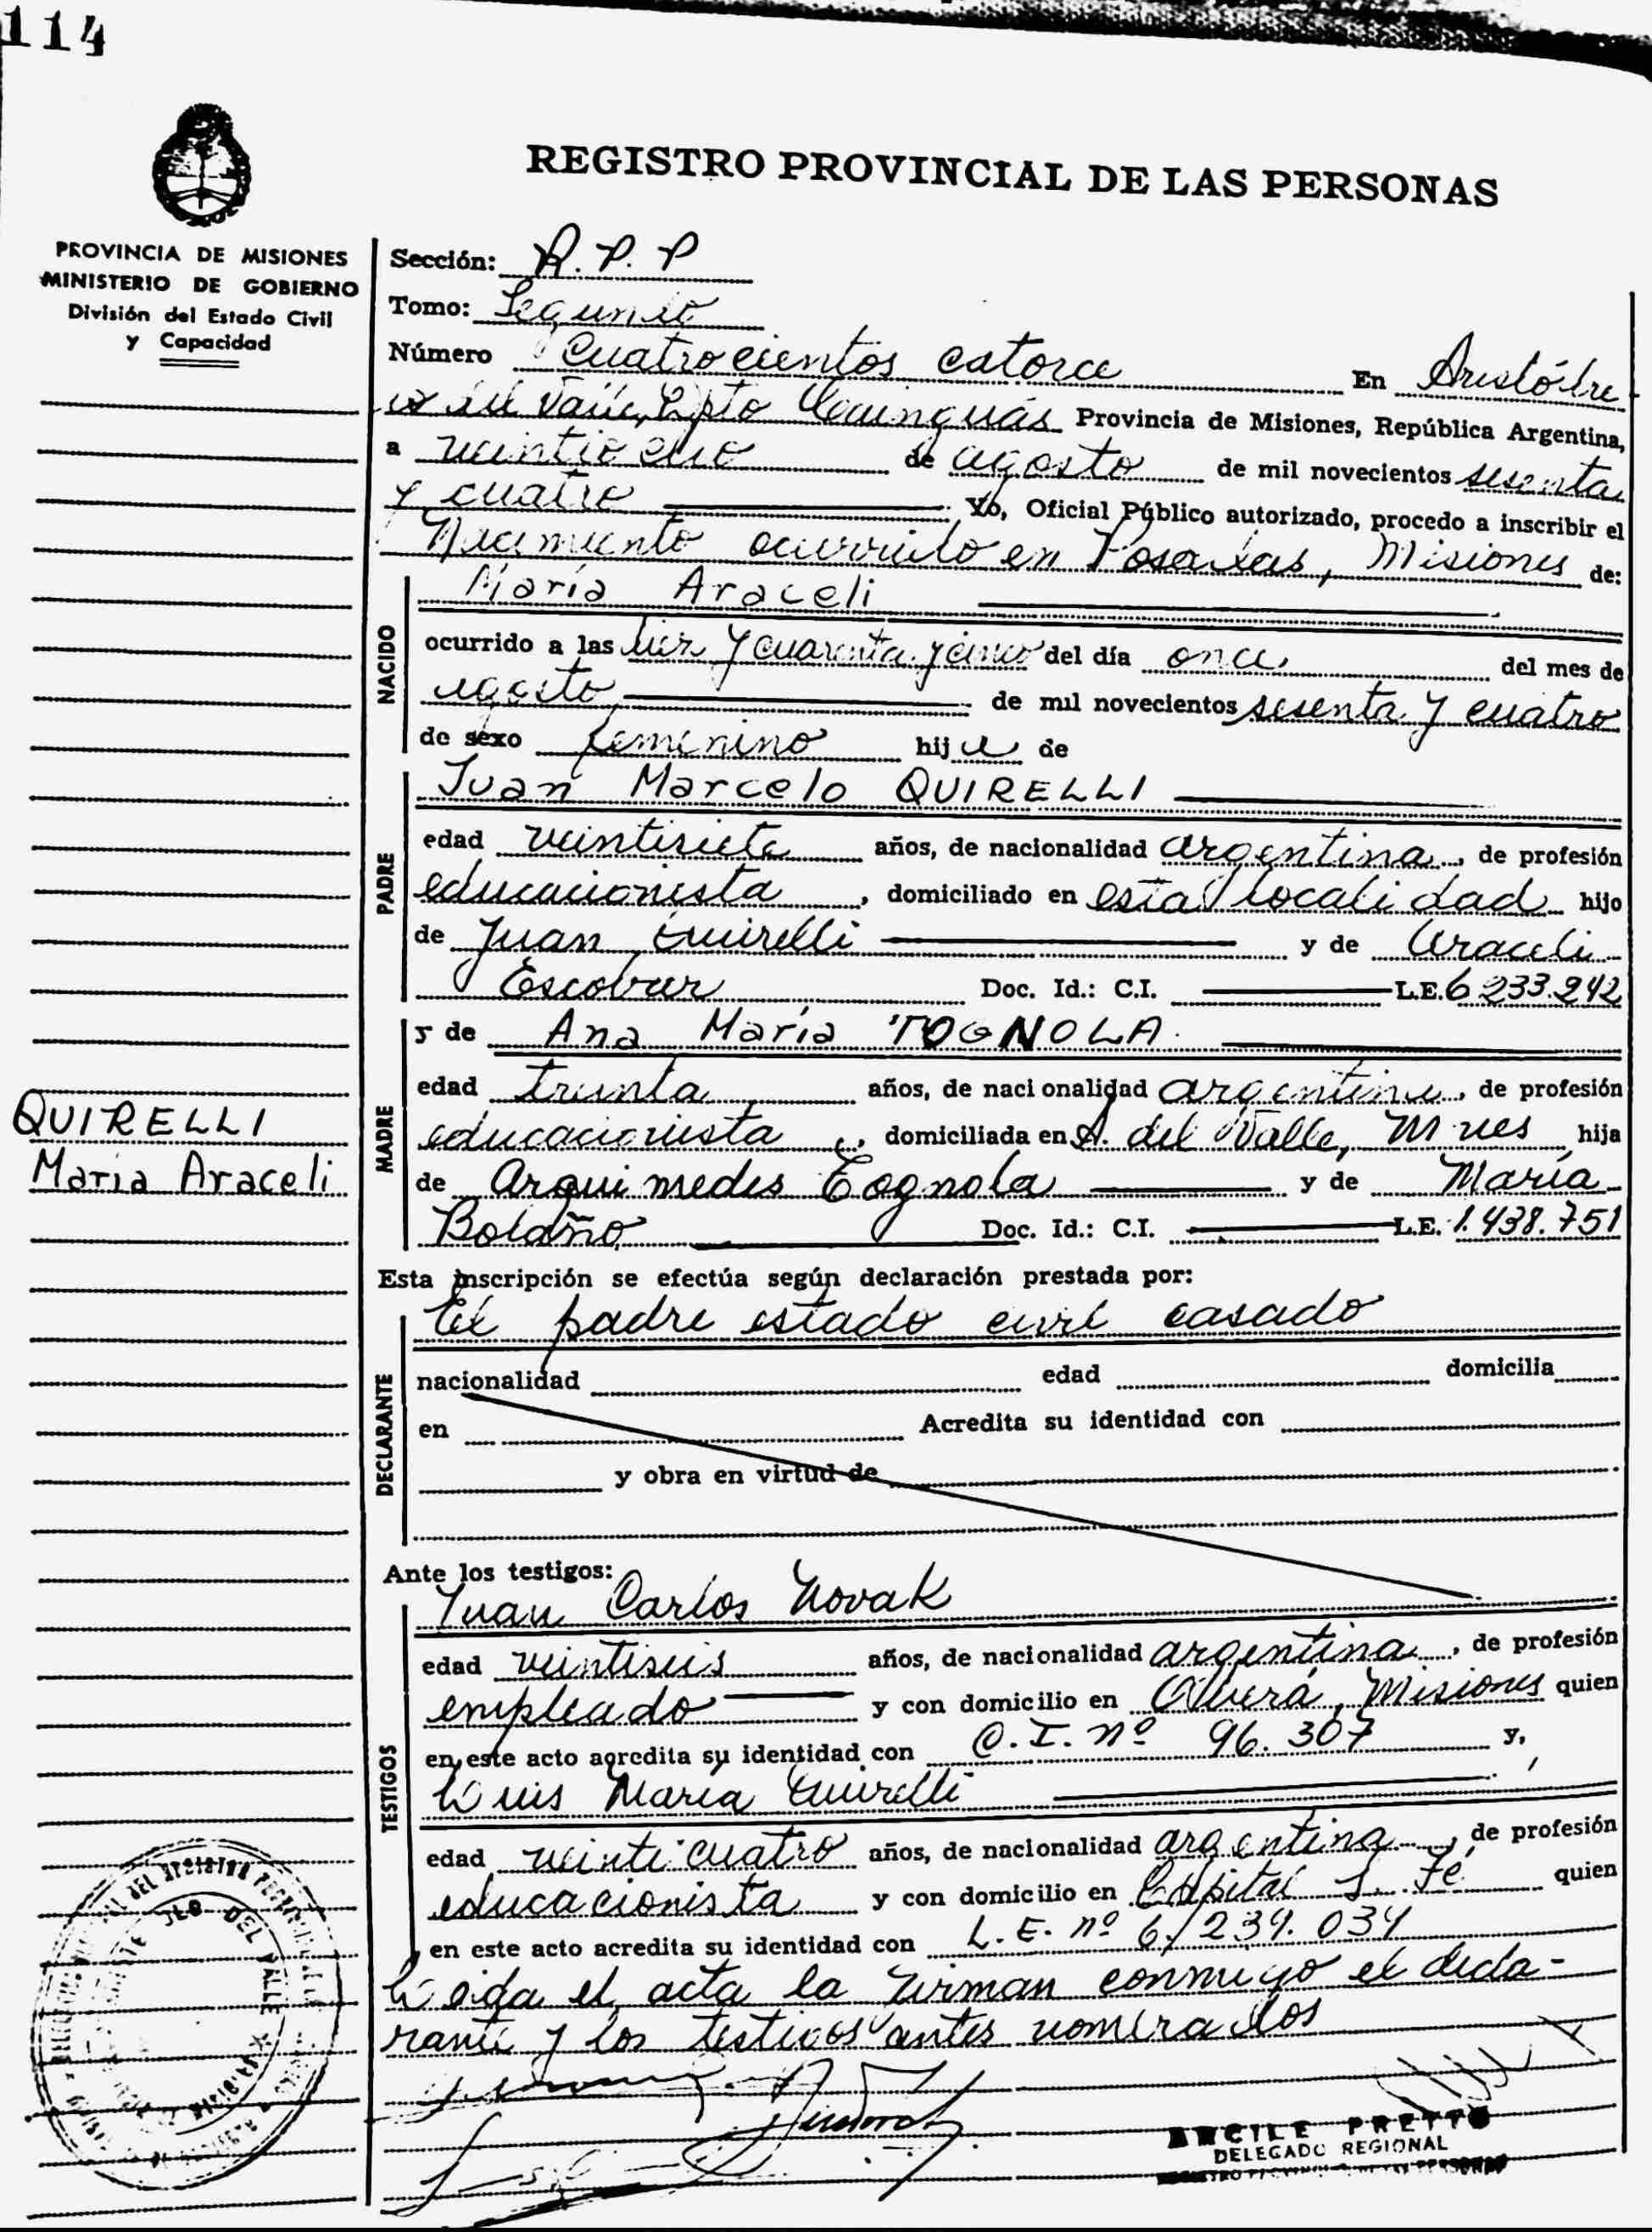 114
REGISTRO PROVINCIAL DE LAS PERSONAS
PROVINCIA DE MISIONES
MINISTERIO DE GOBIERNO
División del Estado Civil
y Capacidad
Sección: R. P. P
Tomo: Segundo
Número Cuatrocientos catorce En Aristóbu
lo del Valle, Dpto Cainguás Provincia de Misiones, República Argentina,
a veintiocho de agosto de mil novecientos sesenta
y cuatro Yo, Oficial Público autorizado, procedo a inscribir el
Nacimiento ocurrido en Posadas, Misiones de:
NACIDO
María Araceli
ocurrido a las diez y cuarenta y cinco del día once del mes de
agosto de mil novecientos sesenta y cuatro
de sexo femenino hija de
PADRE
Juan Marcelo QUIRELLI
edad veintisiete años, de nacionalidad argentina, de profesión
educacionista, domiciliado en esta localidad hijo
de Juan Quirelli y de Araceli
Escobar Doc. Id.: C.I. L.E. 6.233.242
MADRE
y de Ana María TOGNOLA
edad treinta años, de nacionalidad argentina, de profesión
educacionista, domiciliada en A. del Valle, Mnes hija
de Arquimedes Tognola y de María
Bolaño Doc. Id.: C.I. L.E. 1.438.751
QUIRELLI
María Araceli
Esta inscripción se efectúa según declaración prestada por:
DECLARANTE
El padre estado civil casado
nacionalidad edad domicilia
en Acredita su identidad con
y obra en virtud de
Ante los testigos:
TESTIGOS
Juan Carlos Novak
edad veintiseis años, de nacionalidad argentina, de profesión
empleado y con domicilio en Oberá, Misiones quien
en este acto acredita su identidad con C.I. nº 96.307 y,
Luis María Quirelli
edad veinticuatro años, de nacionalidad argentina, de profesión
educacionista y con domicilio en Capital S. Fé quien
en este acto acredita su identidad con L.E. nº 6.239.034
Leida el acta la firman conmigo el decla-
rante y los testigos antes nombrados
DEL VALLE
PRETTO
DELEGADO REGIONAL